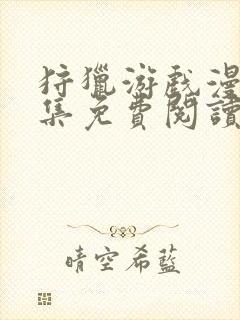 狩獵游戲漫
集免費閱讀
晴空希藍